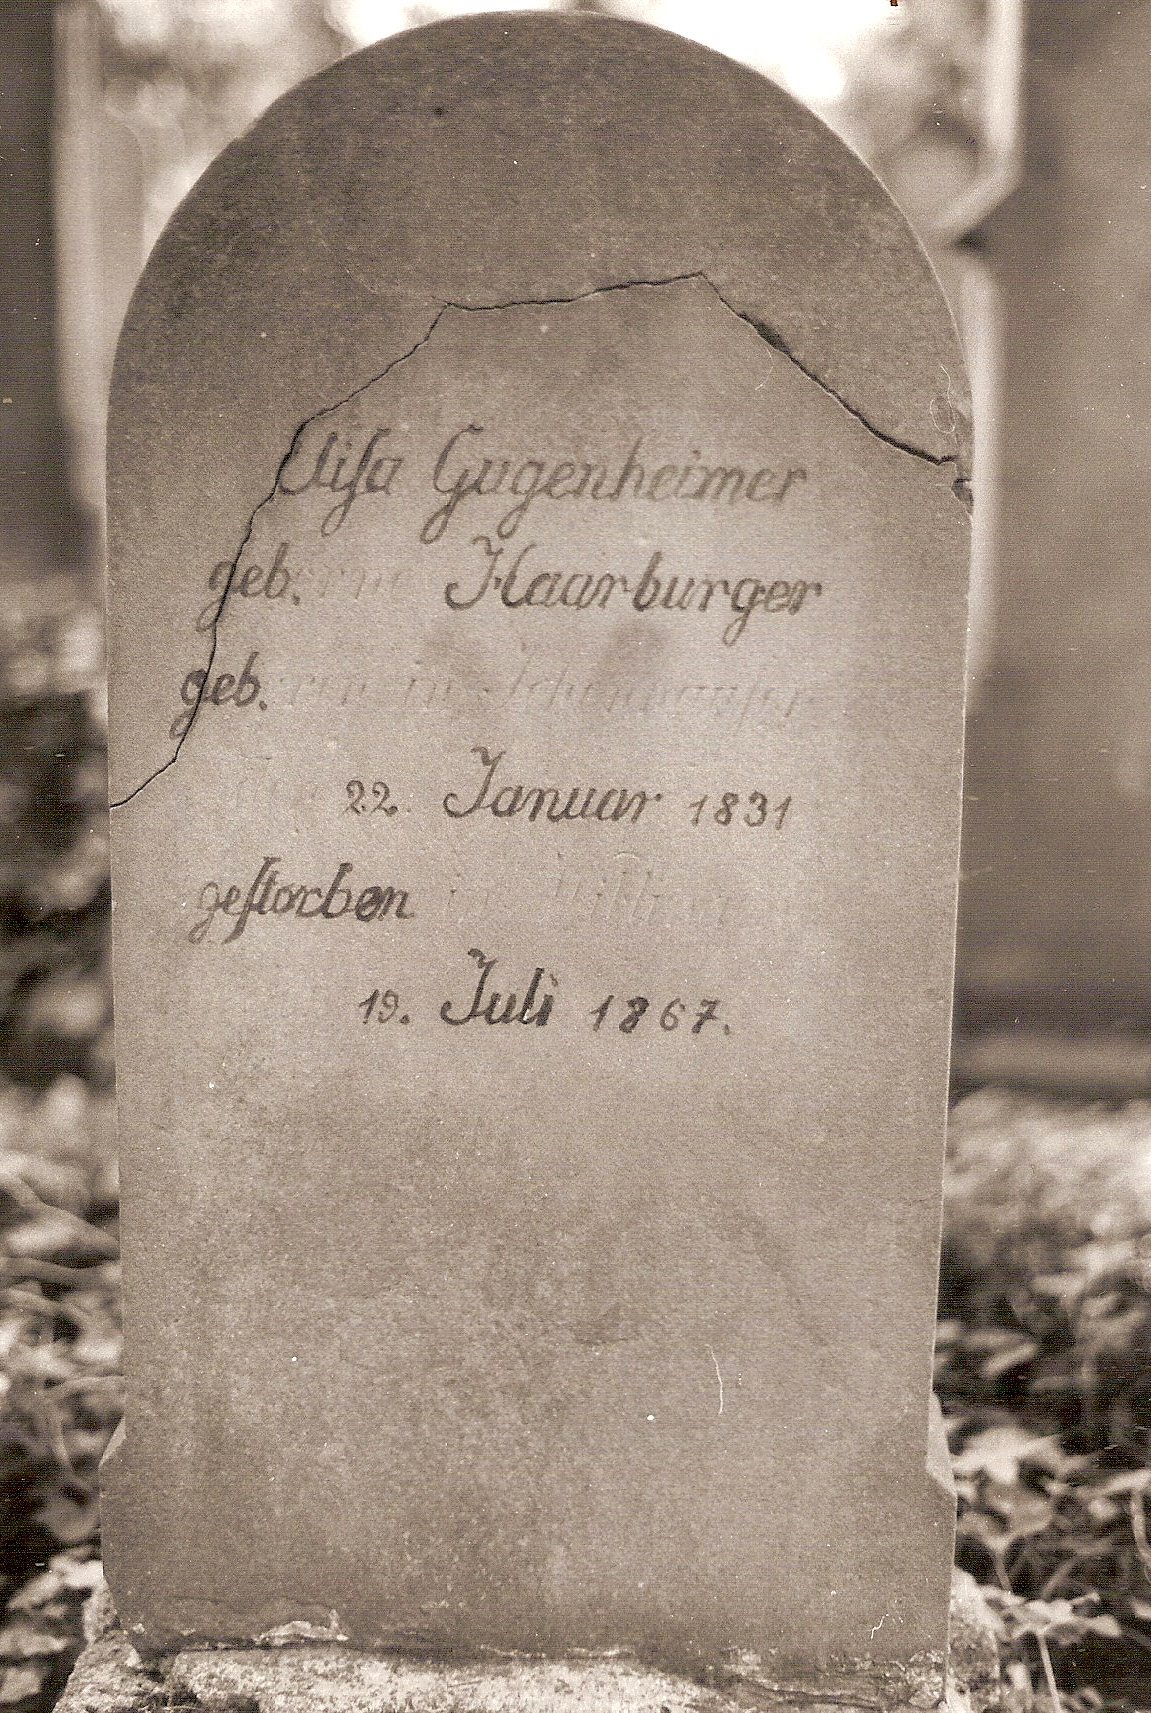 Elisa Gugenheimer
geb. Haarburger
geb.
22. Januar 1831
gestorben
19. Juli 1867.